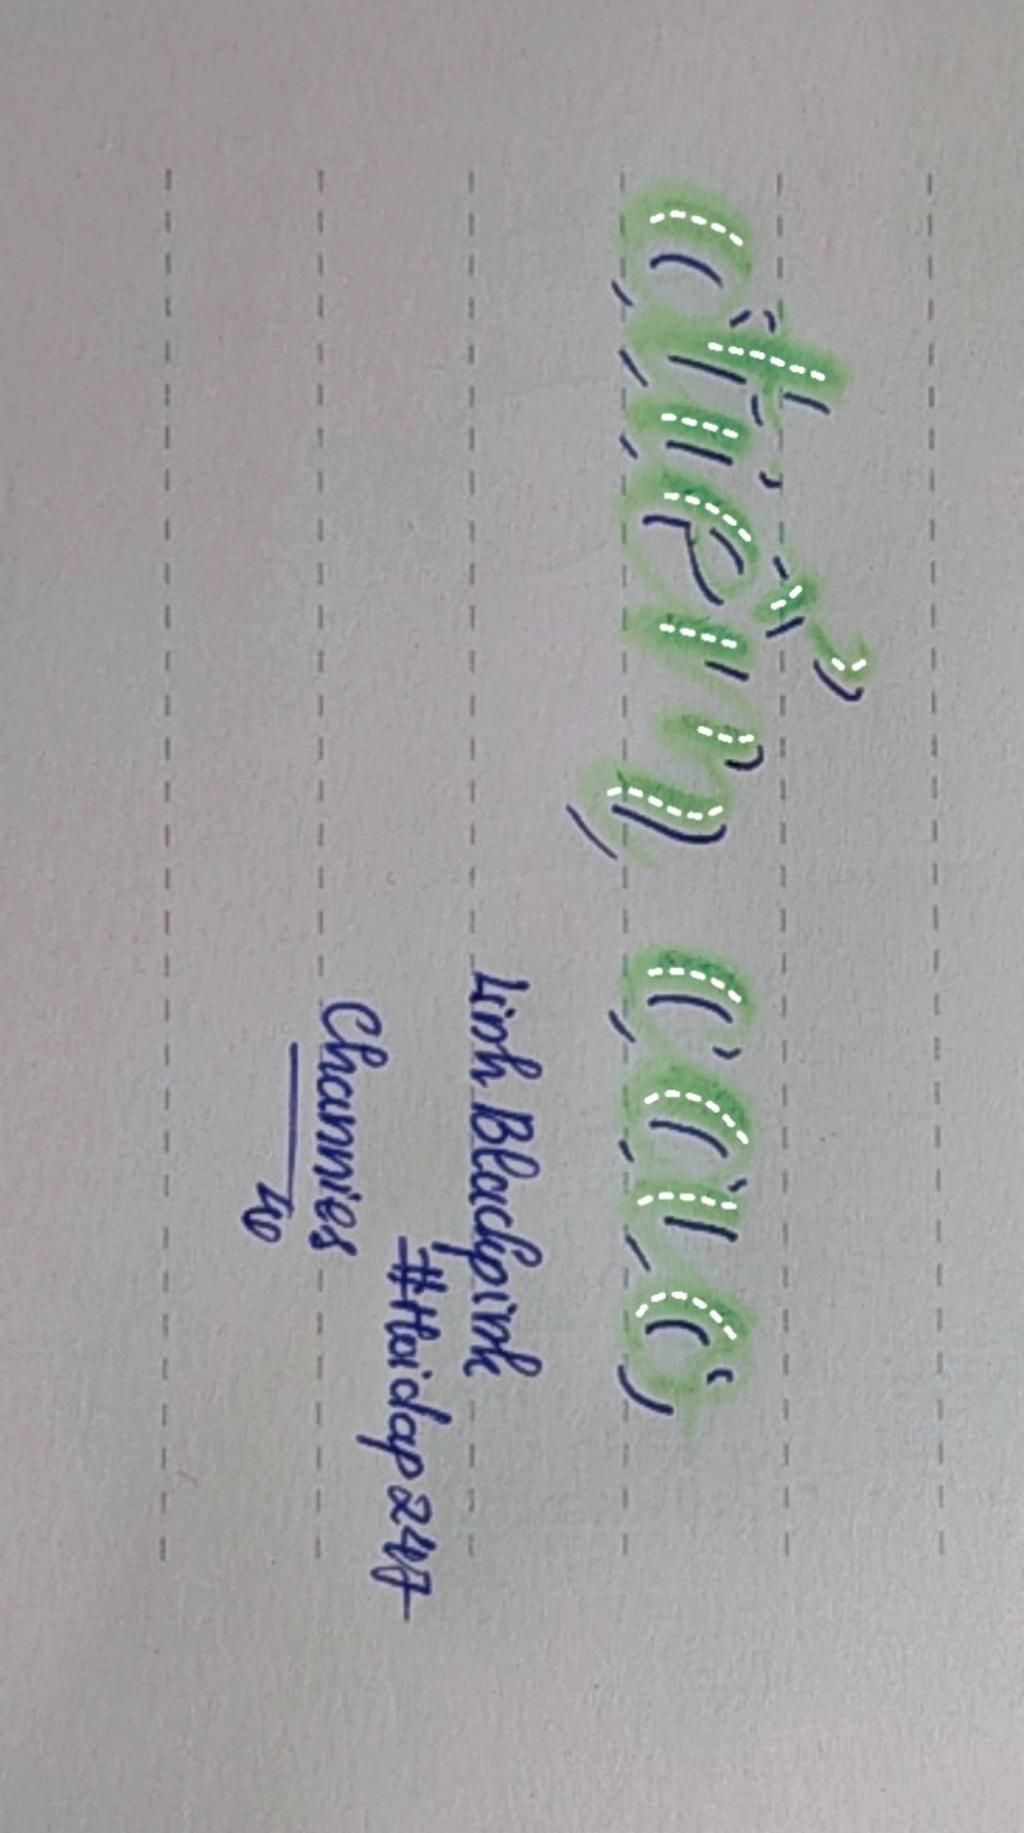 điểm cao
Linh Blackpink
#Hoidap247
Channies